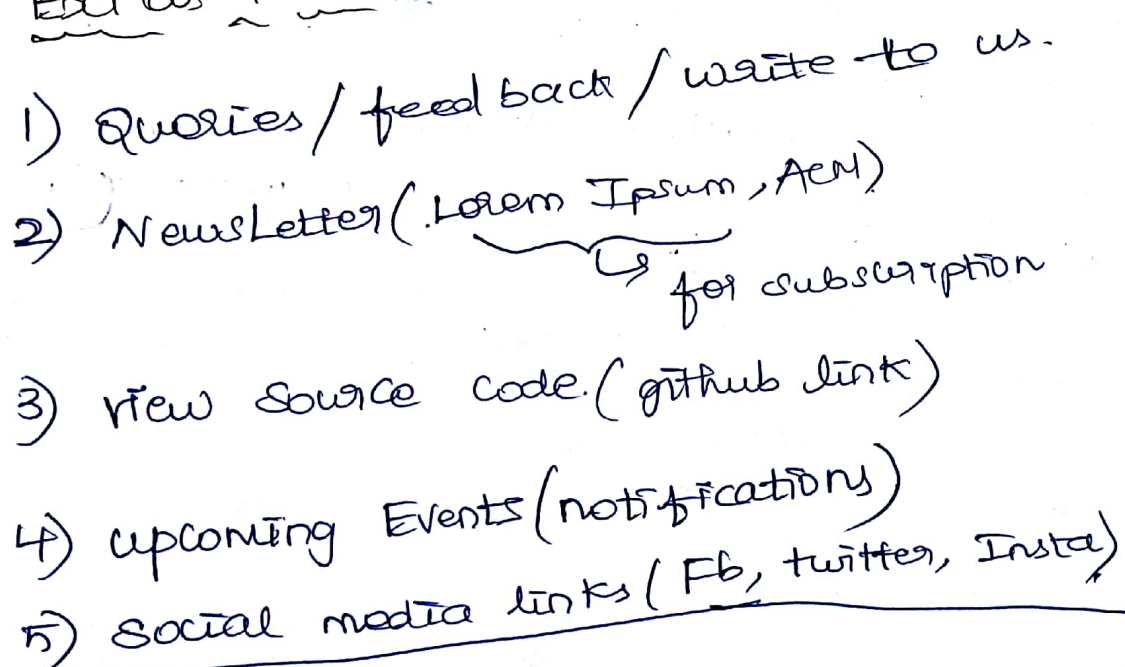 1) Queries / feed back / write to us.
2) NewsLetter (Lorem Ipsum, ACM)
for subscription
3) view source code. (github link)
4) upcoming Events (notifications)
5) social media links (Fb, twitter, Insta)